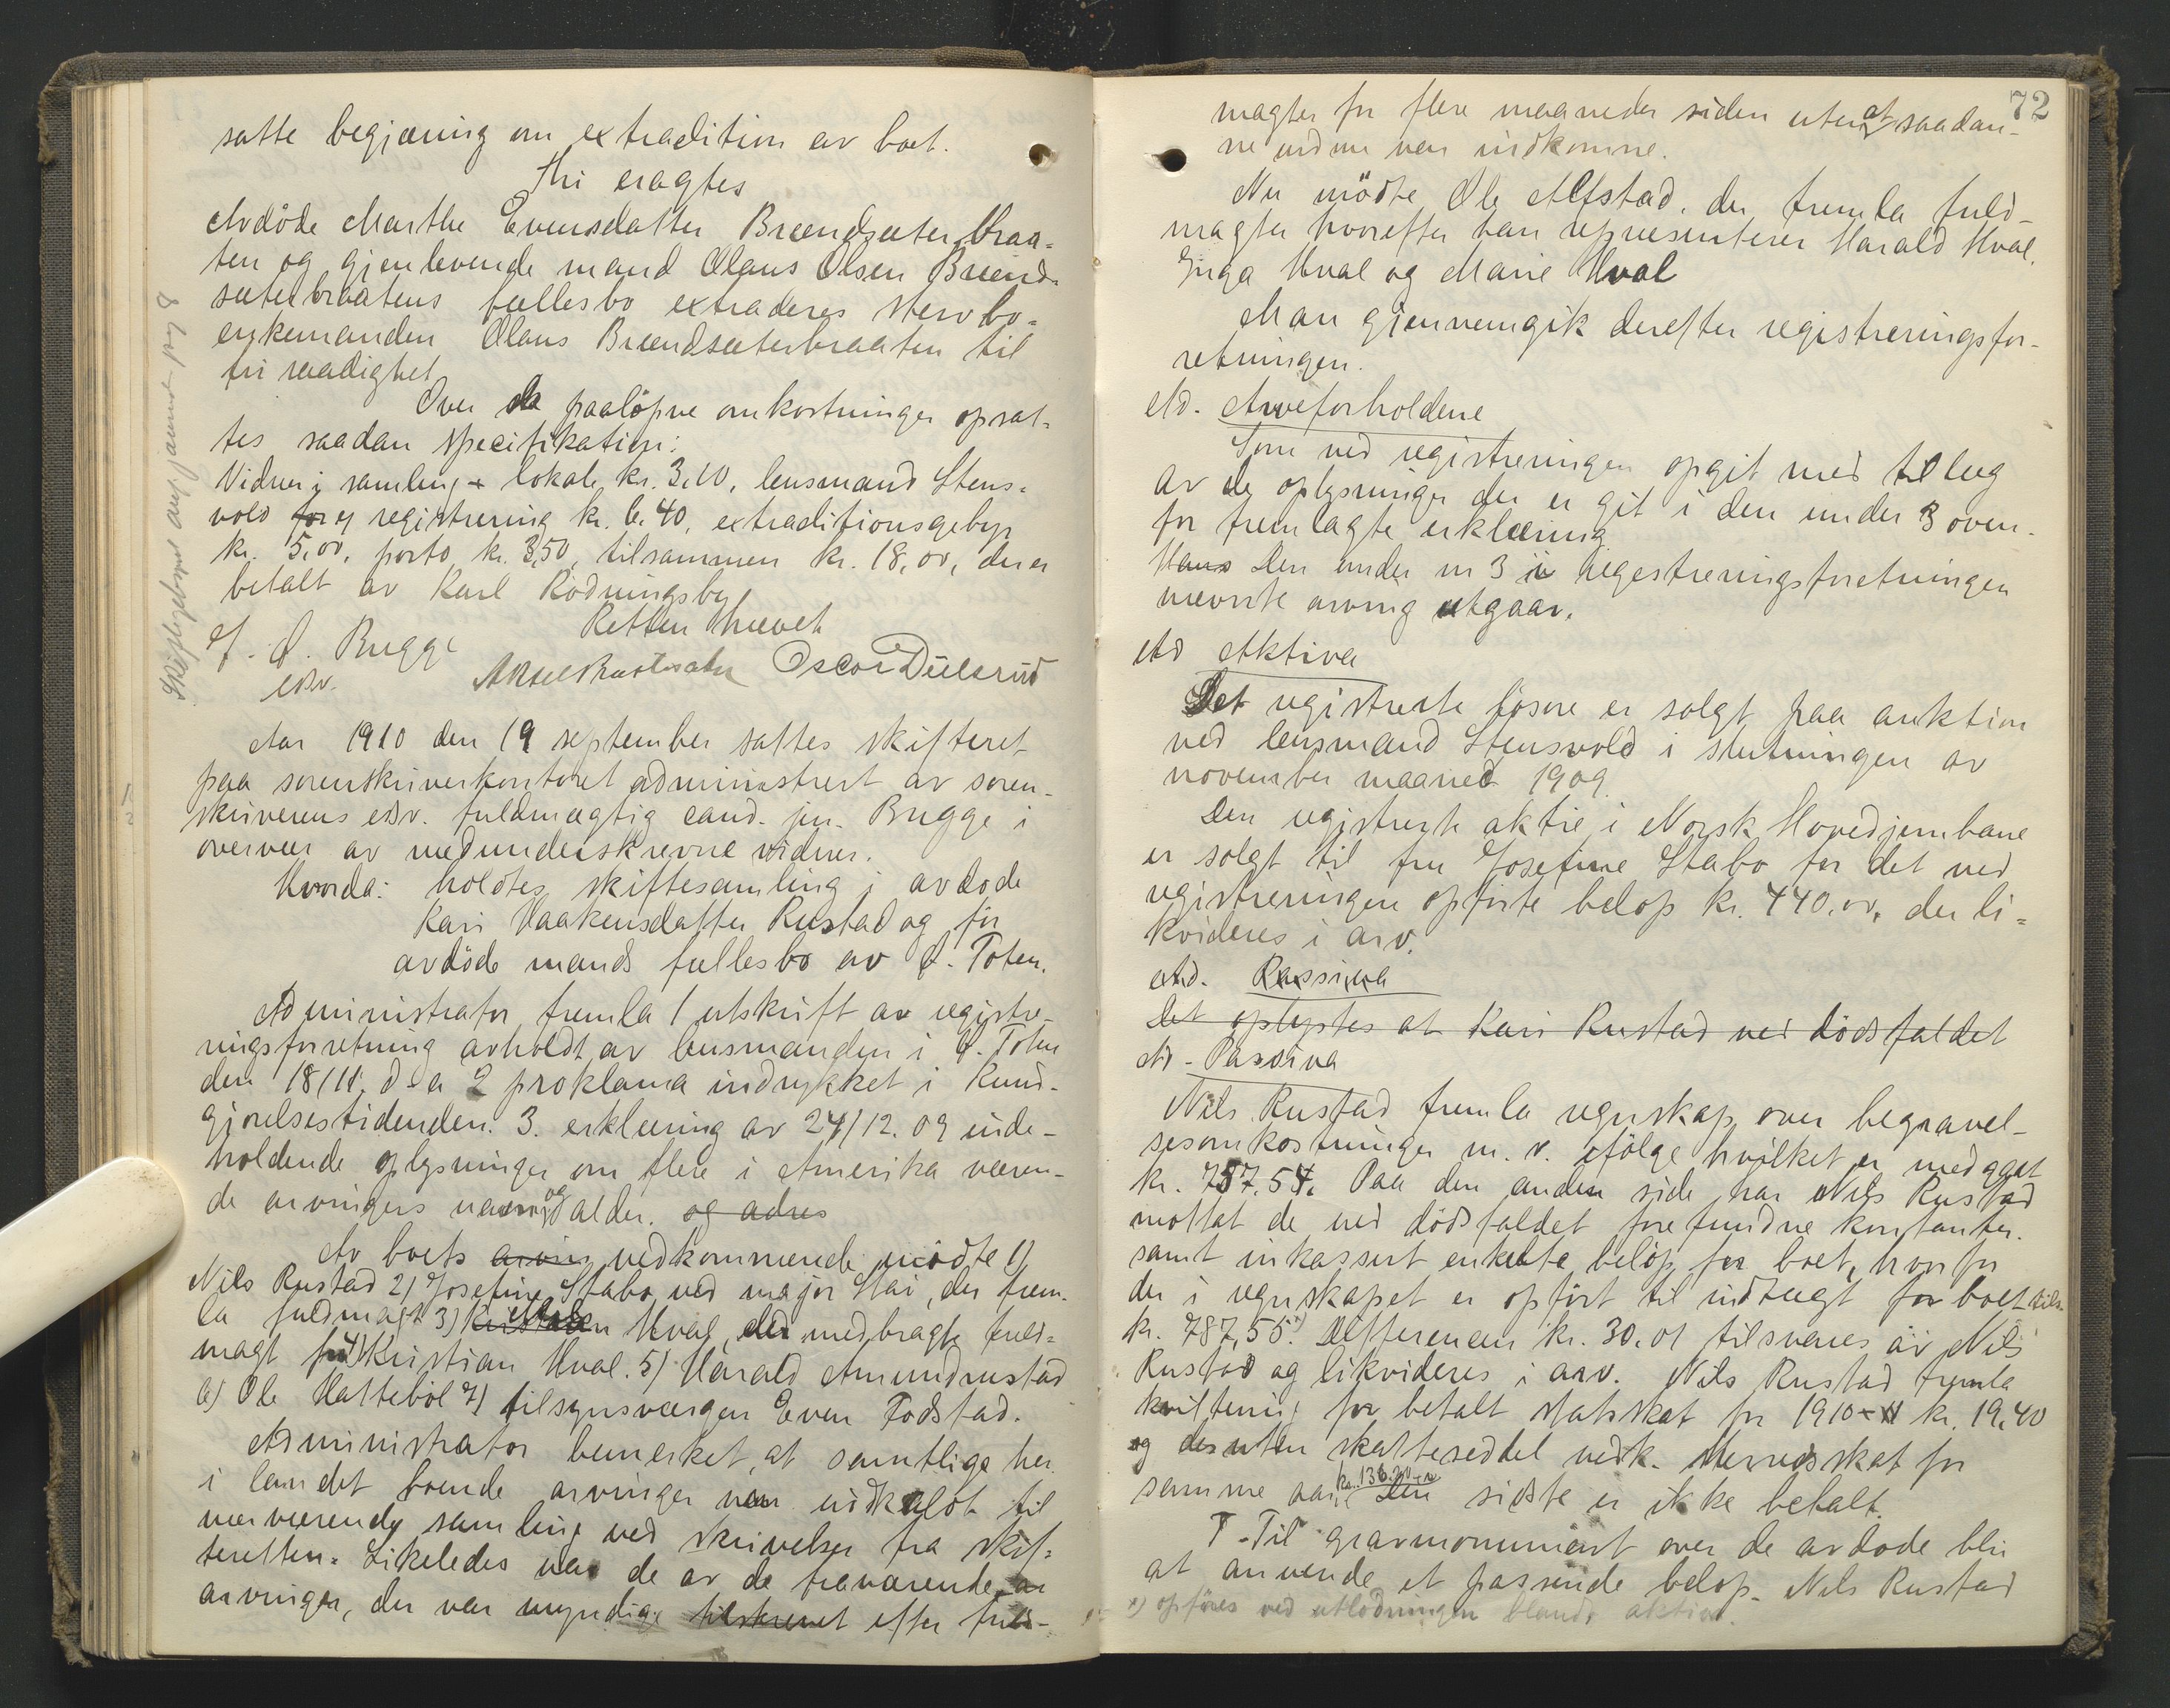 satte begjæring om extradition av boet.
Thi eragtes
Avdöde Marthe Evensdatter Brændsæterbraa-
ten og gjenlevende mand Olaus Olsen Brænd-
sæterbraatens fællesbo extraderes
enkemanden Olaus Brændsæterbraaten til
fri raadighet
Over de paalöpne omkostninger opsat-
tes saadan specifikation:
Vidner i samling + lokale kr. 3,10, lensmand Stens-
vold for registrering kr. 6.40, extraditionsgebyr
kr. 5,00, porto kr. 3,50, tilsammen kr. 18,00, der er
betalt av Karl Rödningsby
Retten hævet
Bugge
esv.
Oscar Dülsrud
Skiftegebyret
Aar 1910 den 19 september sattes skifteret
paa sorenskriverkontoret administrert av soren-
skriverens edsv. fuldmægtig cand. jur. Bugge i
overvær av medunderskrevne vidner.
Hvorda: holdtes skiftesamling i avdöde
Kari Haakensdatter Rustad og för
avdöde mands fællesbo av Ö. Toten.
Administrator fremla 1 utskrift av registre-
ringsforretning avholdt av lensmanden i Ö. Toten
den 18/11. d-a 2 proklama indrykket i Kund-
gjörelsestidenden. 3. erklæring av 24/12. 09 inde-
holdende oplysninger om flere i Amerika væren-
de arvingers navn og alder. og adres
Av boets arvin vedkommende mödte 1)
Nils Rustad 2) Josefine Stabo ved major Stai, der frem-
la fuldmagt 3) Hval, der medbragte fuld-
magt fra 4) Kristian Hval. 5) Harald Amundrustad
6) Ole Hatteböl 7) tilsynsværgen Even Fodstad.
Administrator bemerket, at samtlige her
i landet boende arvinger var indkaldt til
nærværende samling ved skrivelser fra skif-
teretten. Likeledes var de av de fraværende ar
arvinger, der var myndige tilskrevet efter fuld-
72
magter for flere maaneder siden uten at saadan-
ne endnu var indkomne.
Nu mödte Ole Alfstad, der fremla fuld-
magter hvorefter han representerer Harald Hval,
Inga Hval og Marie Hval
Man gjennemgik derefter registreringsfor-
retningen.
Ad. Arveforholdene
Som ved registreringen opgit med tillæg
av de oplysninger der er git i den under 3 oven-
for fremlagte erklæring
Hans Den under nr 3 i registreringsforretningen
nævnte arving utgaar.
Ad Aktiva
Det registrerte lösöre er solgt paa auktion
ved lensmand Stensvold i slutningen av
november maaned 1909.
Den registrerte aktie i Norsk Hovedjernbane
er solgt til fru Josefine Stabo for det ved
registreringen opförte belöp kr. 440.00, der li-
kvideres i arv.
Ad. Passiva
Det oplystes at Kari Rustad ved dödsfaldet
Ad - Passiva
Nils Rustad fremla regnskap over begravel-
sesomkostninger m. v. ifölge hvilket er medgaat
kr. 757.54. Paa den anden side har Nils Rustad
mottat de ved dödsfaldet forefundne kontanter.
samt inkassert enkelte belöp for boet, hvorfor
der i regnskapet er opfört til indtægt for boet tils.
kr. 787,55. x) Differencen kr. 30.01 tilsvares av Nils
Rustad og likvideres i arv. Nils Rustad fremla
kvittering for betalt statsskat for 1910-11 kr. 19,40
og desuten skatteseddel vedk. Herredsskat for
samme aar, kr. 136.20 Den sidste er ikke betalt.
T-Til gravmonument over de avdöde blir
at anvende et passende belöp. Nils Rustad
x) opföres ved utlodningen blandt aktiva.